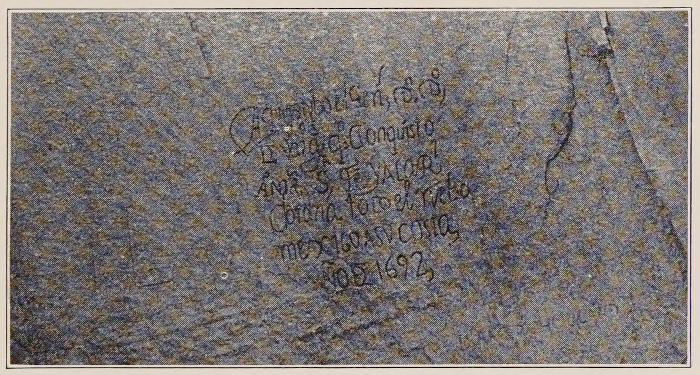 Aqui estubo el Genl
de Vargas q Conquisto
A nra S. Fe y A La Rl
Corona todo el nuebo
mexico A su costa
Año de 1692